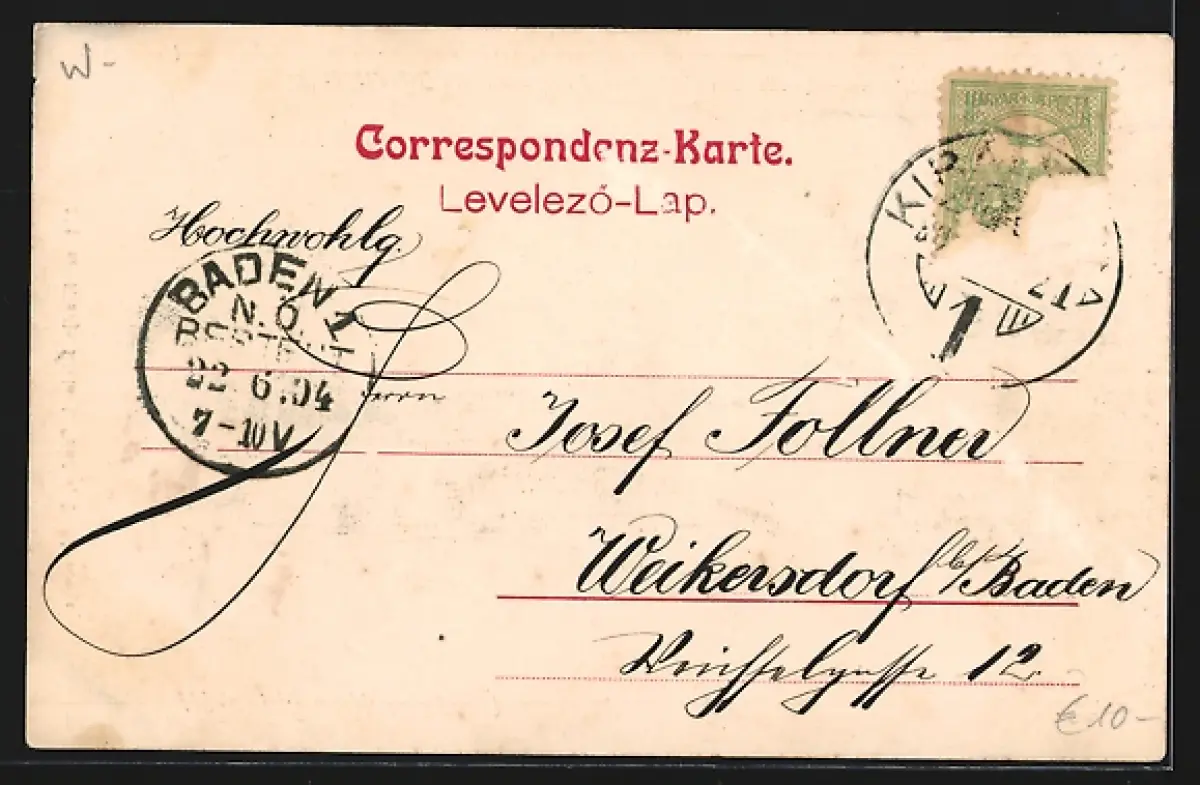 W-
MAGYAR KIR. POSTA
Correspondenz-Karte.
Levelező-Lap.
Hochwohlg.
BADEN 1
N.Ö.
22.6.04
7-10V
Herrn
Josef Follner
Weikersdorf b/ Baden
12.
€10-